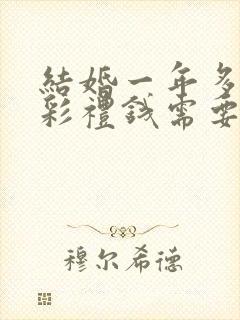 結婚一年多
彩禮錢需要
穆尔希德